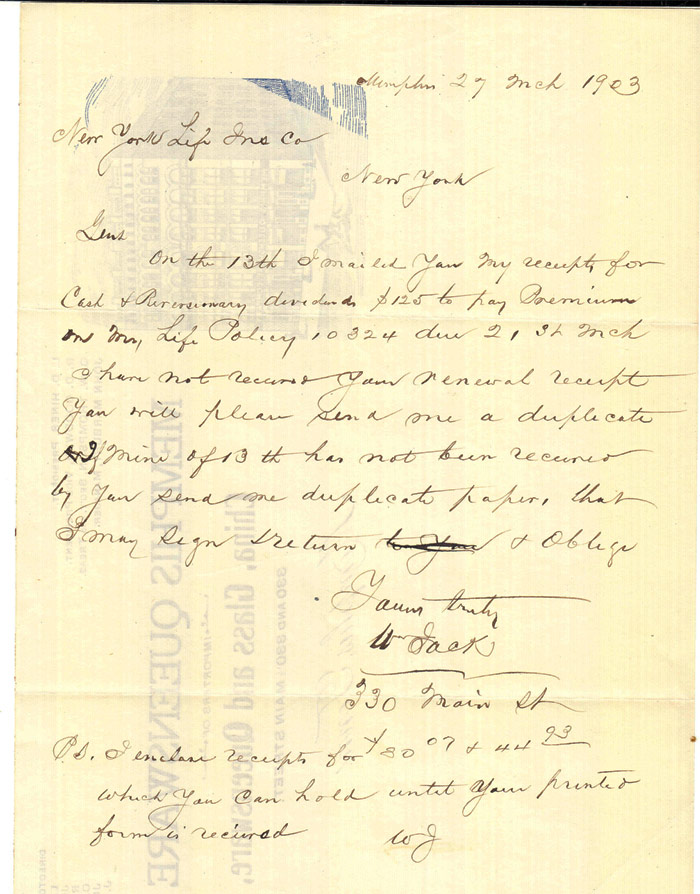 Memphis 27 Mch 1903
New York Life Ins Co
New York
Gent
On the 13th I mailed You My receipts for
Cash & Reversionary dividends $125 to pay Premium
on my Life Policy 10324 due 21 st Mch
I have not received Your renewal receipt
You will please send me a duplicate
or If Mine of 13 th has not been received
by You send me duplicate papers that
I may sign & return to You & Oblige
Yours truly
Wm Jack
330 Main St
P.S. I enclose receipts for $80 07 & 44 93
which You can hold until Your printed
form is received
WJ
MEMPHIS QUEENSWARE
China, Glass and Queensware,
330 AND 332 MAIN STREET